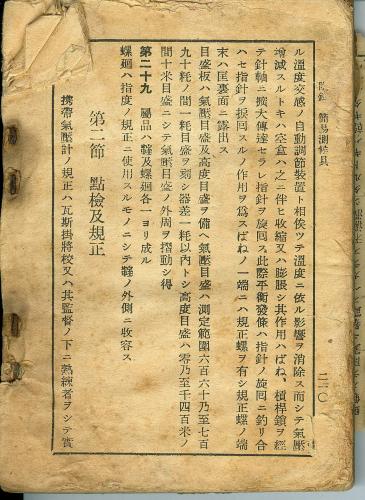 附録 簡易測候具 二二〇
ル溫度交感ノ自動調節裝置ト相俟ツテ溫度ニ依ル影響ヲ消除ス而シテ氣壓
增減スルトキハ空盒ハ之ニ伴ヒ收縮又ハ膨脹シ其作用ハばね、槓桿鎖ヲ經
テ針軸ニ擴大傳達セラレ指針ヲ旋囘ス此際平衡發條ハ指針ノ旋囘ニ釣リ合
ハセ指針ヲ捩囘スルノ作用ヲ爲スばねノ一端ニハ規正螺ヲ有シ規正螺ノ端
末ハ尾裏面ニ露出ス
目盛板ハ氣壓目盛及高度目盛ヲ備ヘ氣壓目盛ハ測定範圍六百六十乃至七百
九十粍ノ間一粍目盛ヲ刻シ器差一粍以內トシ高度目盛ハ零乃至千四百米ノ
間十米目盛ニシテ氣壓目盛ノ外周ヲ摺動シ得
第二十九 屬品ハ鞾及螺廻各一ヨリ成ル
螺廻ハ指度ノ規正ニ使用スルモノニシテ鞾ノ外側ニ收容ス
第二節 點檢及規正
携帶氣壓計ノ規正ハ瓦斯掛將校又ハ其監督ノ下ニ熟練者ヲシテ實